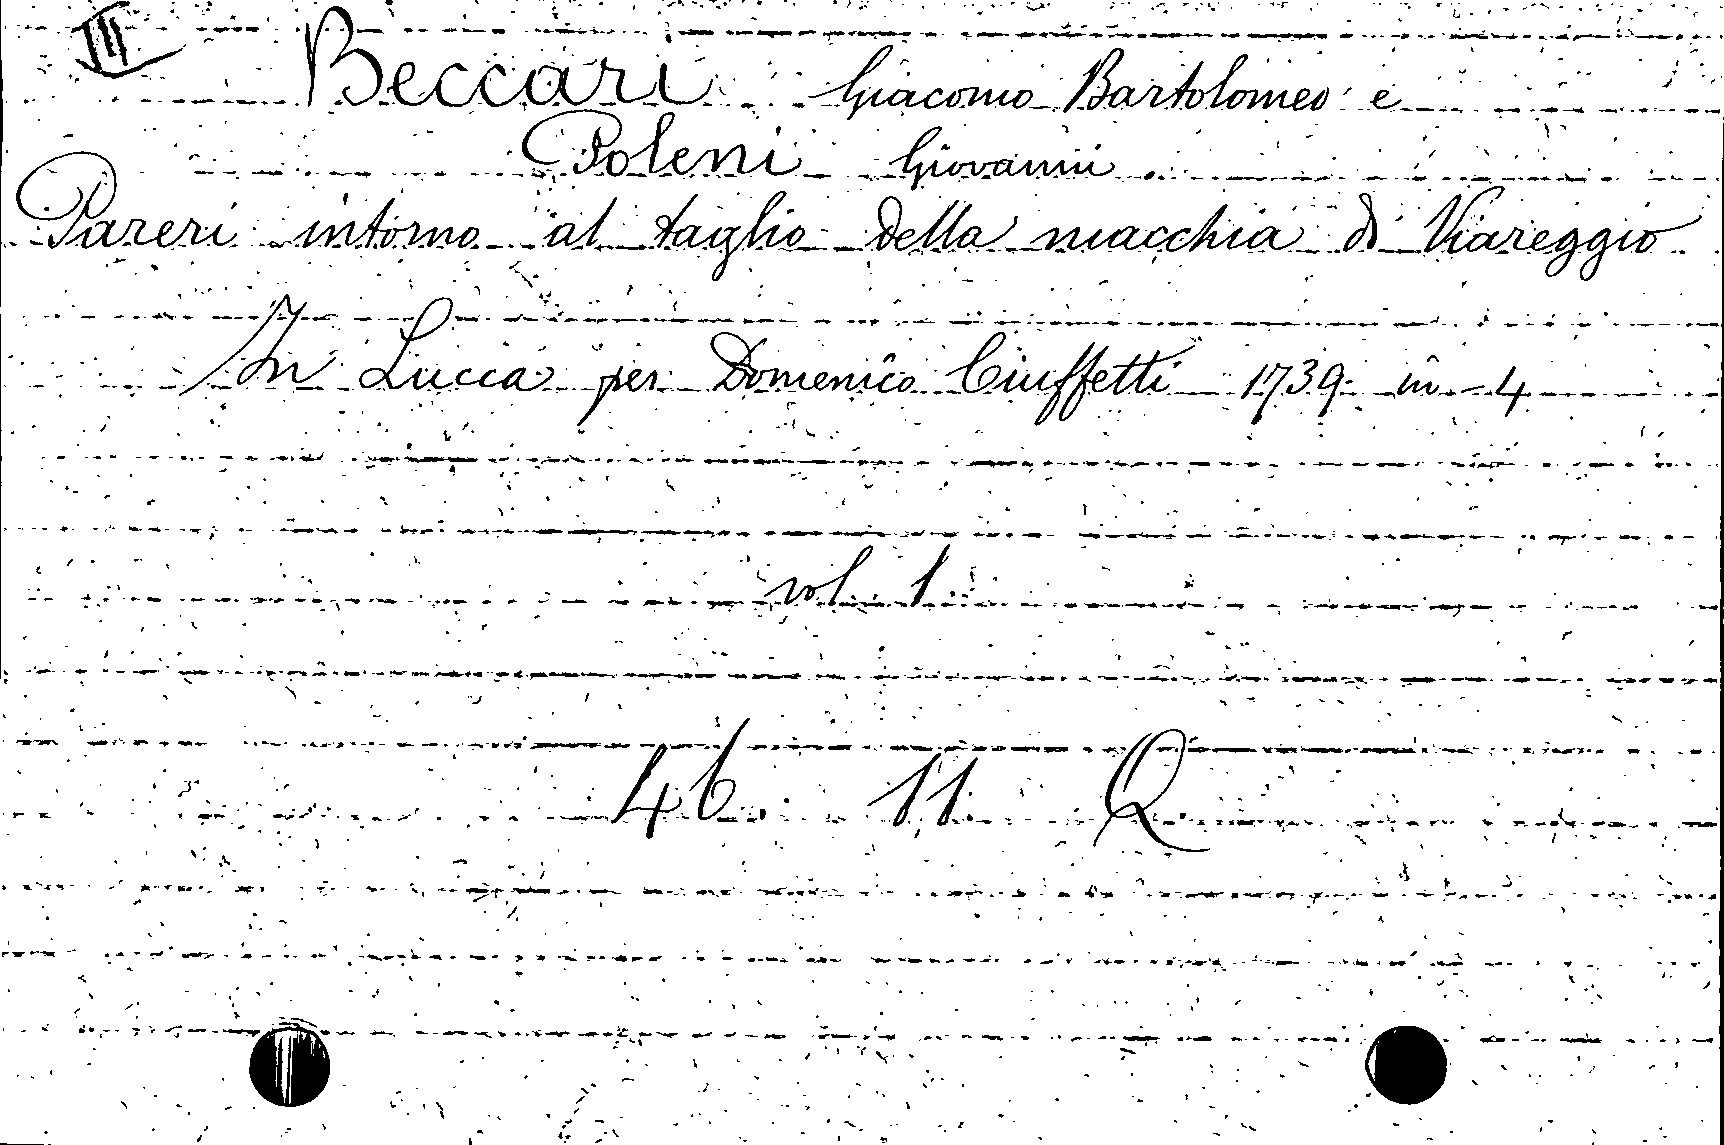 III
Beccari Giacomo Bartolomeo e
Poleni Giovanni
Pareri intorno al taglio della macchia di Viareggio
In Lucca per Domenico Ciuffetti 1739. in-4
vol. 1.
46. 11. Q.